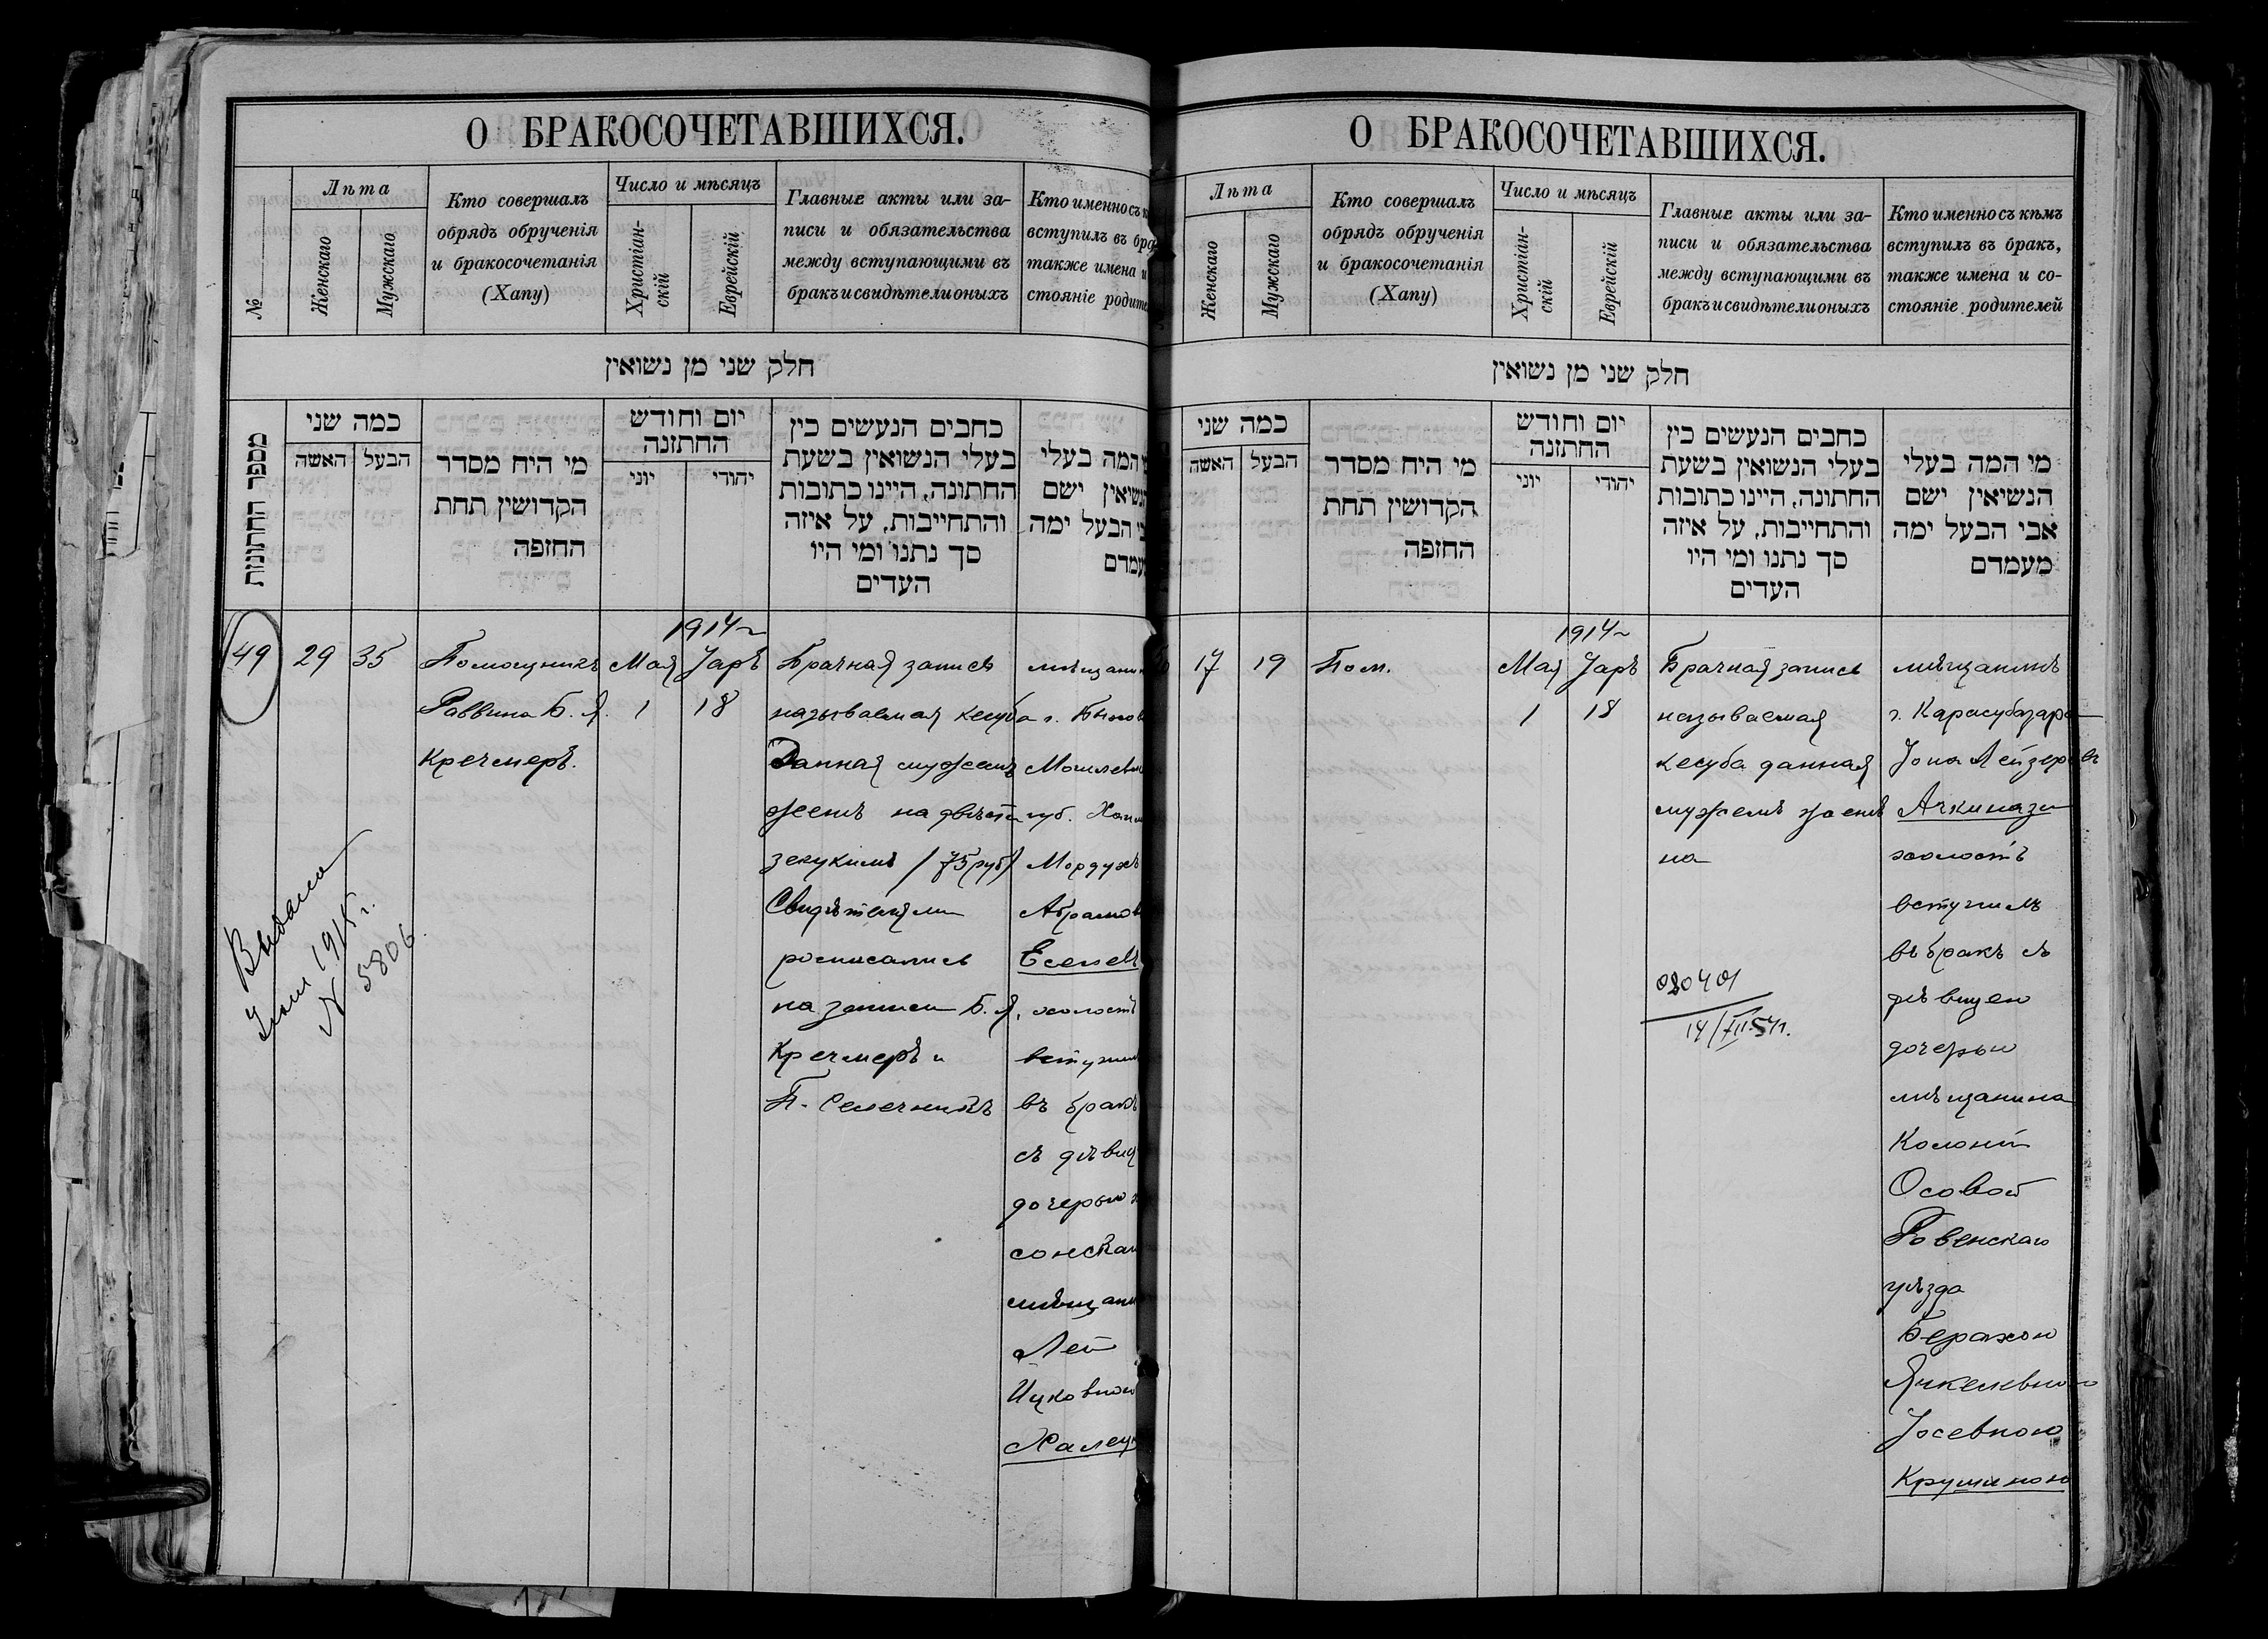 О БРАКОСОЧЕТАВШИХСЯ.
№
Лѣта
Женскаго
Мужскаго
Кто совершалъ
обрядъ обрученія
и бракосочетанія
(Хапу)
Число и мѣсяцъ
Христіан-
скій
Еврейскій
Главные акты или за-
писи и обязательства
между вступающими въ
бракъ и свидѣтели оныхъ
Кто именно съ
вступилъ въ бра
также имена и
стояніе родите
חלק שני מן נשואין
מספר החתונות
כמה שני
האשה
הבעל
מי היח מסדר
הקדושין תחת
החופה
יום וחודש
החתונה
יוני
יהודי
כחבים הנעשים כין
בעלי הנשואין בשעת
החתונה, היינו כתובות
והתחייבות, על איזה
סך נתנו ומי היו
העדים
המה בעלי
ישם
הבעל ימה
49
29
35
Помощникъ
Раввина Б. Я.
Кречмеръ.
1914 г.
Мая
Iаръ
1
18
Брачная запись
называемая кесуба
Данная мужемъ
женѣ на двѣсти
зекукимъ (75 руб)
Свидѣтелями
росписались
на записи Б. Я.
Кречмеръ и
П. Селечникъ
мѣщани
г. Быхов
Могилевс
губ. Хаим
Мордухъ
Абрамов
Еселевъ
холостъ
вступил
въ бракъ
съ дѣвиц
дочерью х
сонскаг
мѣщани
Леи
Ицковною
Халец
Выдана
1915 г.
№ 5806
О БРАКОСОЧЕТАВШИХСЯ.
Лѣта
Женскаго
Мужскаго
Кто совершалъ
обрядъ обрученія
и бракосочетанія
(Хапу)
Число и мѣсяцъ
Христіан-
скій
Еврейскій
Главные акты или за-
писи и обязательства
между вступающими въ
бракъ и свидѣтели оныхъ
Кто именно съ кѣмъ
вступилъ въ бракъ,
также имена и со-
стояніе родителей
חלק שני מן נשואין
כמה שני
האשה
הבעל
מי היח מסדר
הקדושין תחת
החופה
יום וחודש
החתונה
יוני
יהודי
כחבים הנעשים כין
בעלי הנשואין בשעת
החתונה, היינו כתובות
והתחייבות, על איזה
סך נתנו ומי היו
העדים
מי המה בעלי
הנשיאין ישם
אבי הבעל ימה
מעמדם
17
19
Пом.
1914 г.
Мая
Iаръ
1
18
Брачная запись
называемая
кесуба данная
мужемъ женѣ
на
020401
14/XII 54 г.
мѣщанинъ
г. Карасубазара
Iона Лейзеровъ
Ачкинази
холостъ
вступилъ
въ бракъ съ
дѣвицею
дочерью
мѣщанина
Колоніи
Осовой
Ровенскаго
уѣзда
Берахою
Янкелевною
Iосевною
Крушиною